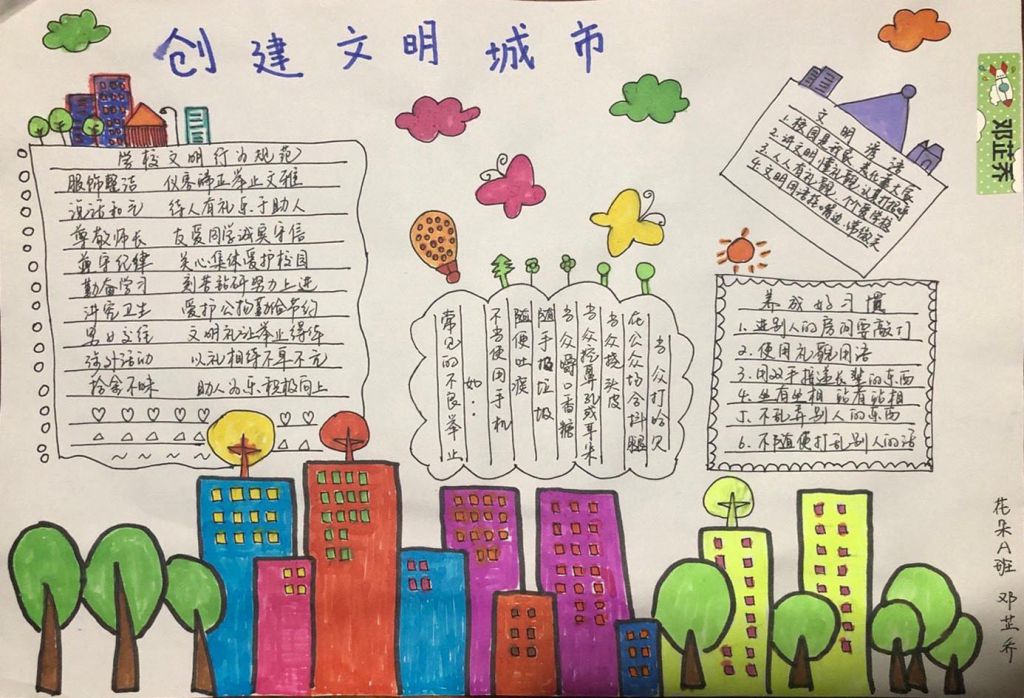 创建文明城市
邓芷乔
学校文明行为规范
服饰整洁 仪容端正举止文雅
说话和气 待人有礼乐于助人
尊敬师长 友爱同学诚实守信
遵守纪律 关心集体爱护校园
勤奋学习 刻苦钻研努力上进
讲究卫生 爱护公物勤俭节约
男女交往 文明礼让举止得体
涉外活动 以礼相待不卑不亢
拾金不昧 助人为乐积极向上
文明清洁
常见的不良举止
如:
不当使用手机
随便吐痰
随手扔垃圾
当众嚼口香糖
当众挖鼻孔或耳朵
当众挠头皮
在公众场合抖腿
当众打哈欠
养成好习惯
1.进别人的房间要敲门
2.使用礼貌用语
3.用双手接递长辈的东西
4.坐有坐相 站有站相
5.不乱弄别人的东西
6.不随便打乱别人的话
花朵A班 邓芷乔